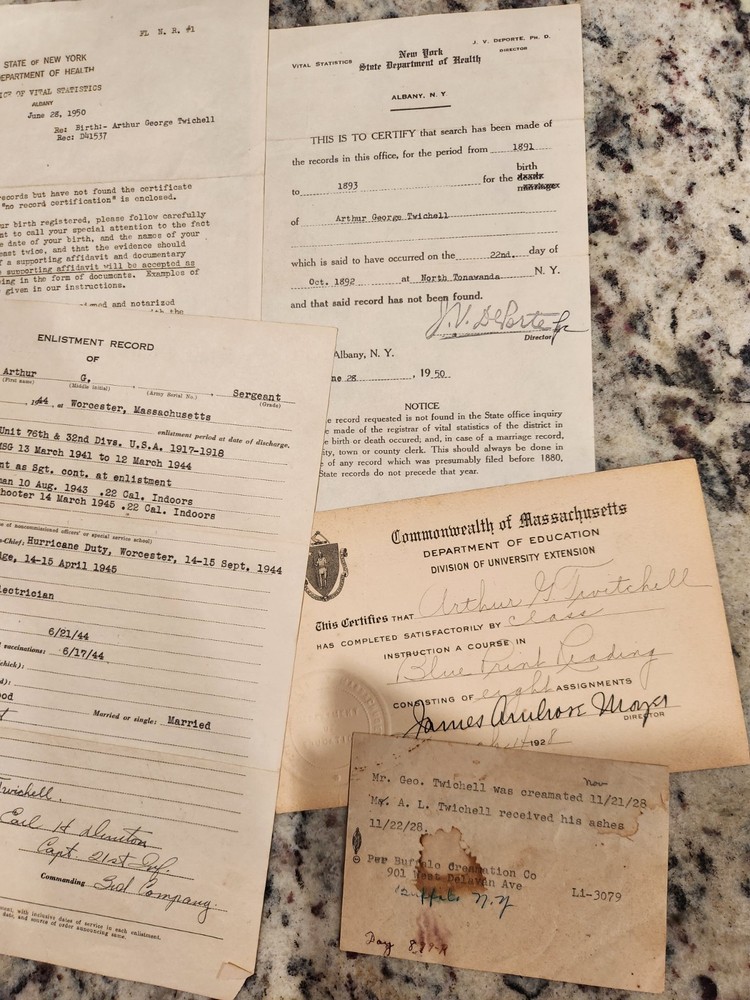 FL N. R. #1
STATE OF NEW YORK
DEPARTMENT OF HEALTH
OFFICE OF VITAL STATISTICS
ALBANY
June 28, 1950
Re: Birth:- Arthur George Twichell
Rec: D41537
records but have not found the certificate
"no record certification" is enclosed.
ur birth registered, please follow carefully
nt to call your special attention to the fact
e date of your birth, and the names of your
east twice, and that the evidence should
f a supporting affidavit and documentary
supporting affidavit will be accepted as
ing in the form of documents. Examples of
given in our instructions.
igned and notarized
with the
VITAL STATISTICS
New York
State Department of Health
J. V. DEPORTE, PH. D.
DIRECTOR
ALBANY, N. Y.
THIS IS TO CERTIFY that search has been made of
the records in this office, for the period from 1891
to 1893 for the birth
death
marriage
of Arthur George Twichell
which is said to have occurred on the 22nd. day of
Oct. 1892 at North Tonawanda N. Y.
and that said record has not been found.
J.V. DePorte
Director
Albany, N. Y.
ne 28 , 1950.
NOTICE
e record requested is not found in the State office inquiry
made of the registrar of vital statistics of the district in
e birth or death occured; and, in case of a marriage record,
ity, town or county clerk. This should always be done in
of any record which was presumably filed before 1880,
State records do not precede that year.
ENLISTMENT RECORD
OF
Arthur G. , Sergeant
(First name) (Middle initial) (Army Serial No.) (Grade)
, 1944, at Worcester, Massachusetts
enlistment period at date of discharge.
Unit 76th & 32nd Divs. U.S.A. 1917-1918
MSG 13 March 1941 to 12 March 1944
nt as Sgt. cont. at enlistment
man 10 Aug. 1943 .22 Cal. Indoors
hooter 14 March 1945 .22 Cal. Indoors
of noncommissioned officers' or special service school)
-Chief; Hurricane Duty, Worcester, 14-15 Sept. 1944
ge, 14-15 April 1945
lectrician
6/21/44
vaccinations: 6/17/44
which):
d):
ood
Married or single: Married
Twichell.
Earl H
Capt. 21st Inf.
Commanding 3rd Company.
ment, with inclusive dates of service in each enlistment.
date, and source of order announcing same.
Commonwealth of Massachusetts
DEPARTMENT OF EDUCATION
DIVISION OF UNIVERSITY EXTENSION
This Certifies THAT Arthur G. Twitchell
HAS COMPLETED SATISFACTORILY BY class
INSTRUCTION A COURSE IN
Blue Print Reading
CONSISTING OF eight ASSIGNMENTS
James Ambrose Moyer
DIRECTOR
1928
nov
Mr. Geo. Twichell was creamated 11/21/28
Mr. A. L. Twichell received his ashes
11/22/28.
Per Buffalo Creamation Co
901 West Delavan Ave
Buffalo N.Y
Li-3079